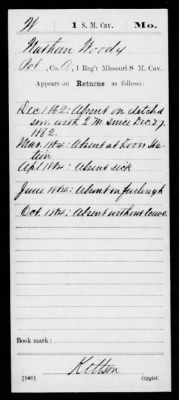 W 1 S. M. Cav. Mo.
Nathan Woody
Pvt., Co. A, 1 Reg't Missouri S M. Cav.
Appears on Returns as follows:
Dec 1862: Absent on detch'd
serv. with 2 M. since Dec. 27,
1862.
Mar. 1864: Absent at Loose
Apl 1864: Absent sick
June 1864: Absent on furlough
Oct. 1864: Absent without leave
Book mark:
Kittson
(546) Copyist.